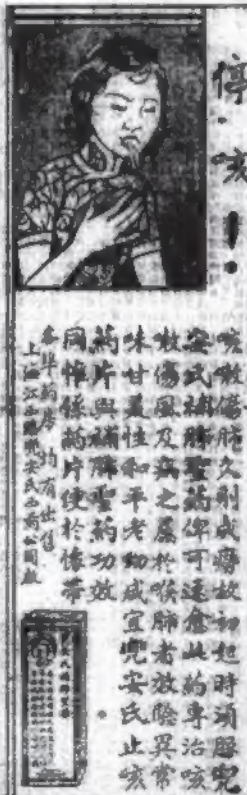 停咳！
咳嗽傷肺久則成癆故初起時須服兜
安氏補肺聖藥俾可速愈此藥專治咳
嗽傷風及病之屬於喉肺者效驗異常
味甘美性和平老幼咸宜兜安氏止咳
藥片與補肺聖藥功效
同惟係藥片便於懷帶
各埠藥房均有出售
上海江西路兜安氏西藥公司啟